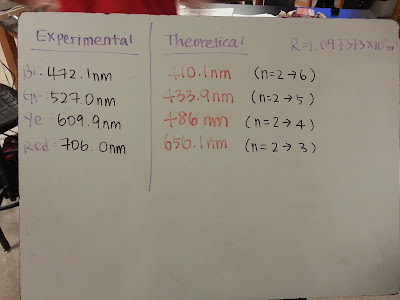 Experimental Theoretical R=1.097373×10⁷m⁻¹
Bl· 472.1nm 410.1nm (n=2→6)
Gr· 527.0nm 433.9nm (n=2→5)
Ye· 609.9nm 486 nm (n=2→4)
Red· 706.0nm 656.1nm (n=2→3)